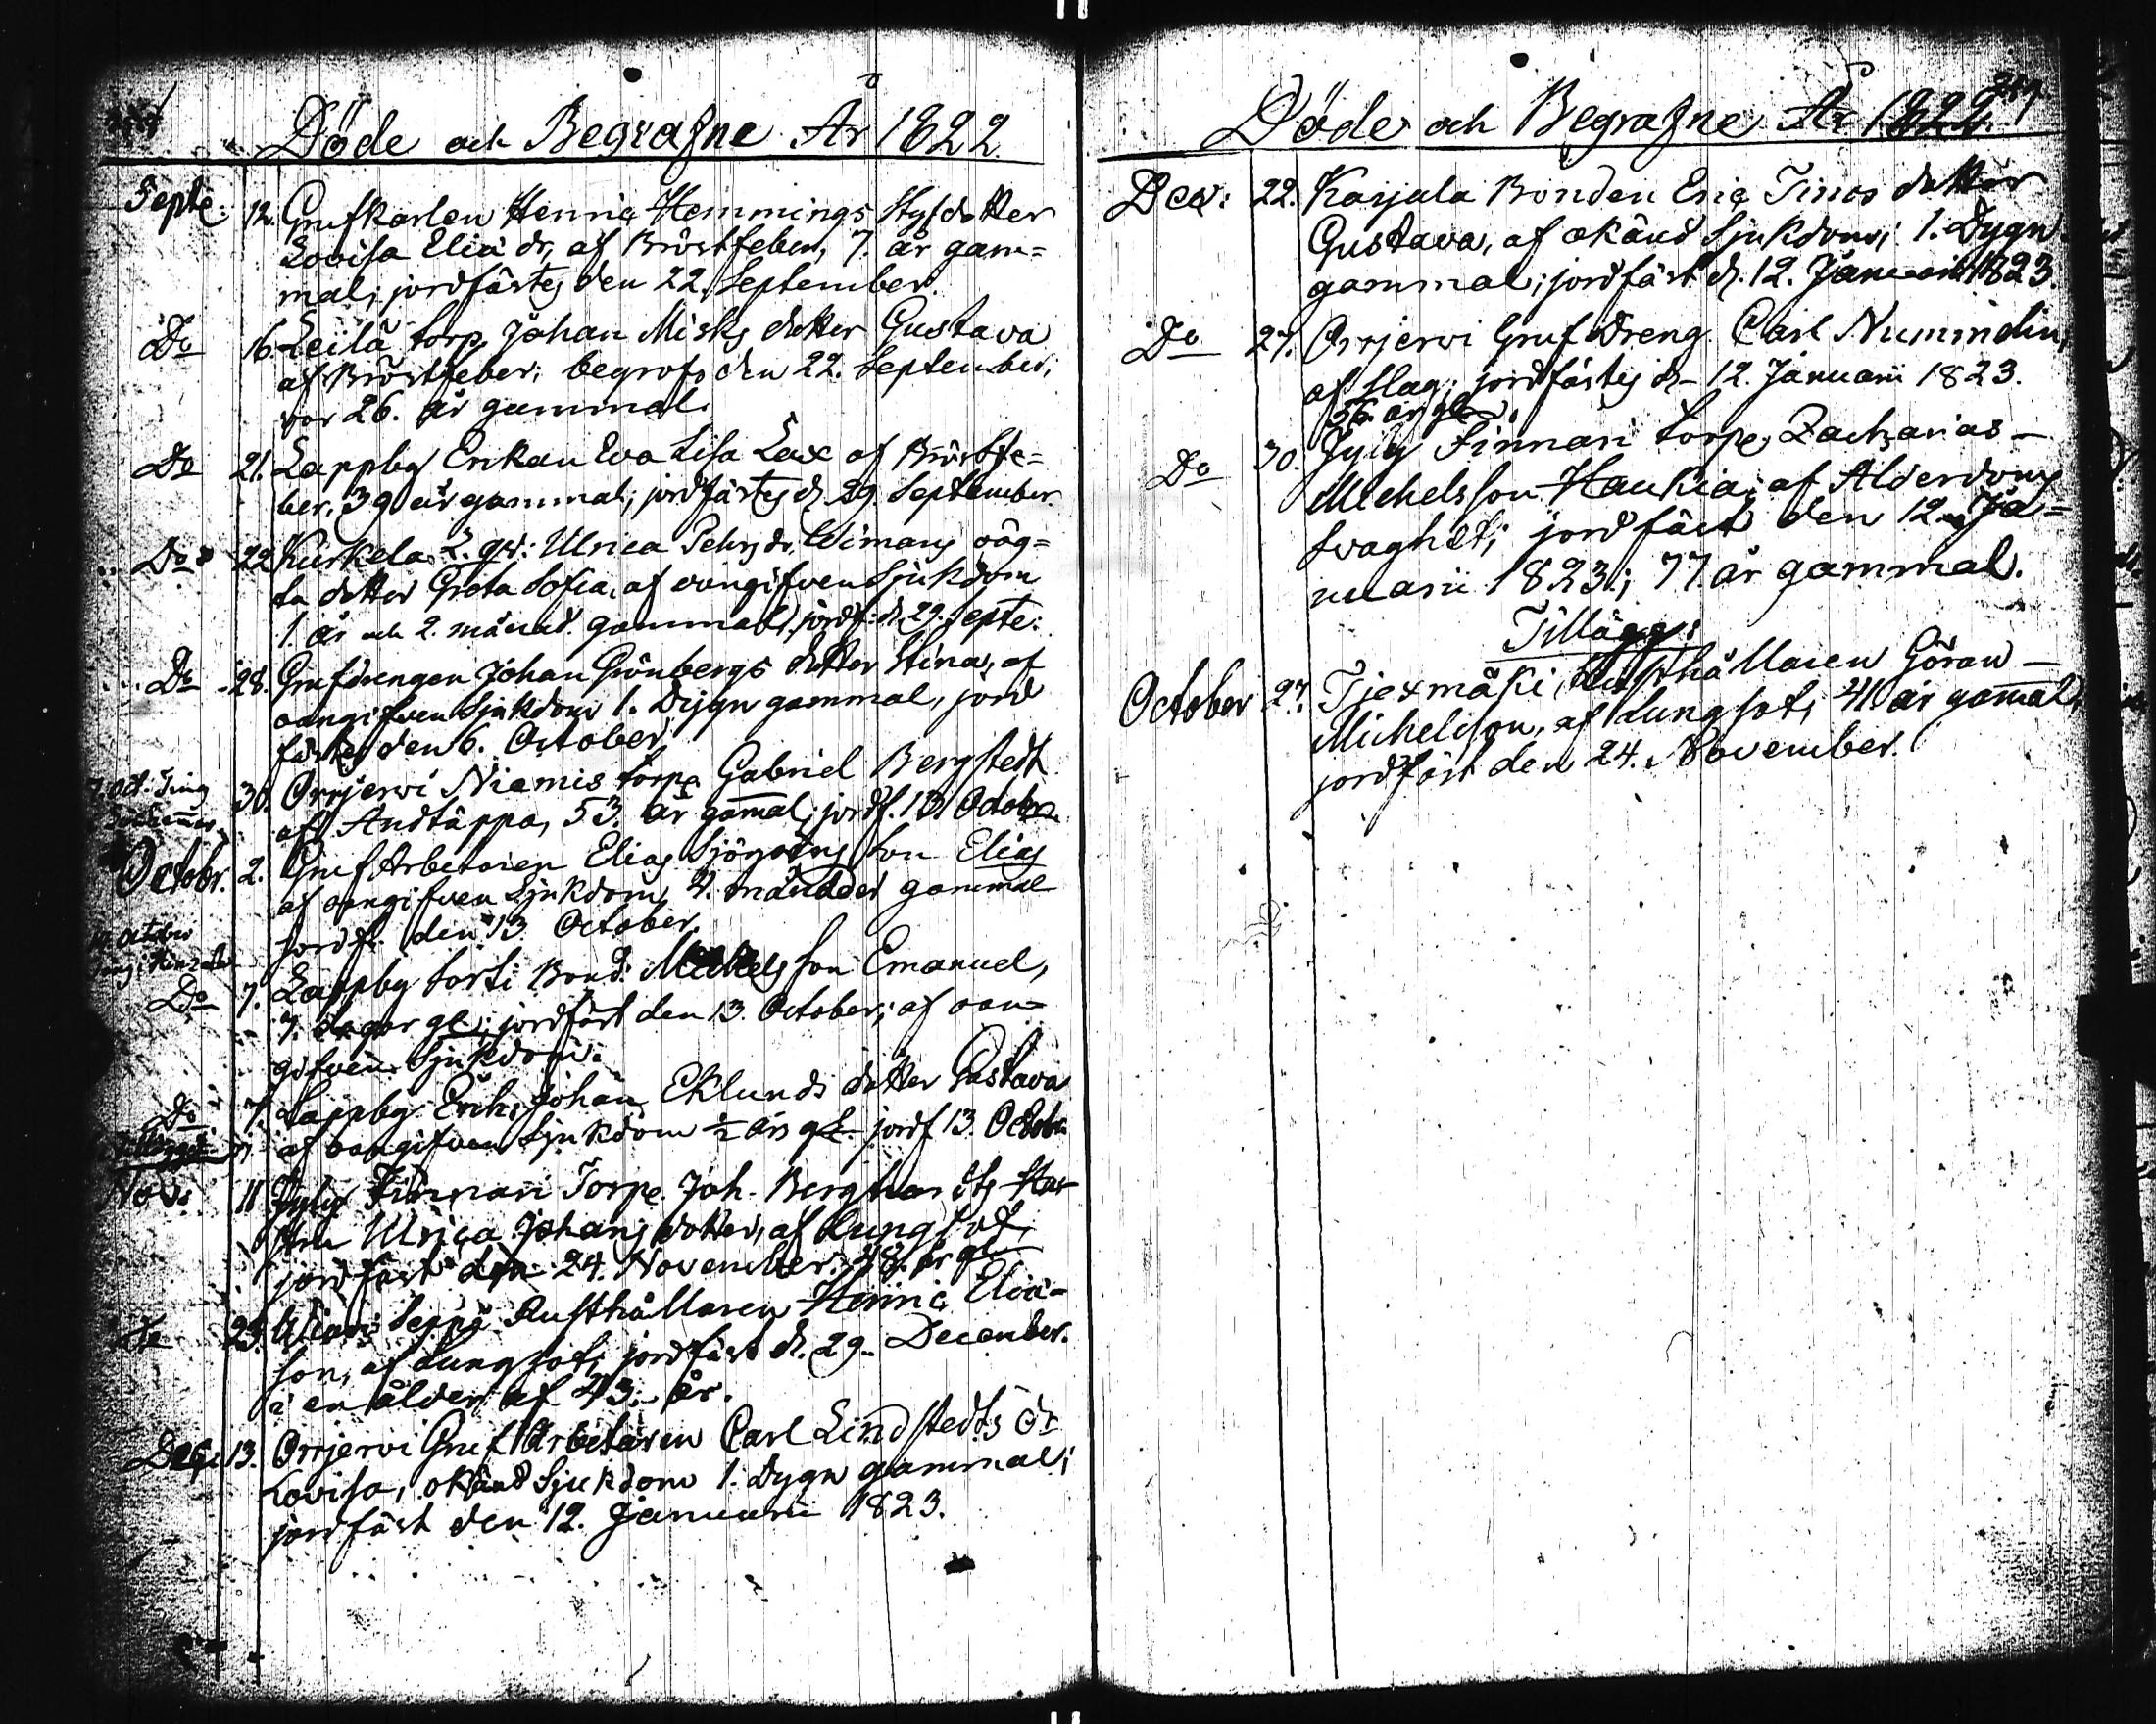 Döde och Begrafne År 1822
Septe. 12. Grufkarlen Henric Hemmings Styfdotter
Lovisa Eliæ dr, af Bröstfeber, 7. år gam=
mal; jordfästes den 22. September.
Do 16. Leilä torp. Johan Misks dotter Gustava
af Bröstfeber; begrofs den 22. September;
var 26. år gammal.
Do 21. Lappby Enkan Eva Lisa Lax af Bröstfe=
ber, 39 år gammal; jordfästes d. 29. September.
Do 22. Kurkela Ulrica Pehrs dr. Wimans oäg=
ta dotter Greta Sofia, af oangifven Sjukdom
1. år och 2. månad. gammal; jordf: d. 29. Septe:
Do 28. Grufdrengen Johan Grönbergs dotter Stina, af
oangifven Sjukdom 1. Dygn gammal, jord
fästes den 6. October.
30. Orrjervi Niemis torpe Gabriel Bergstedt
af Andtäppa, 53. år gamal; jordf. 13 October
Octobr. 2. Gruf Arbetaren Elias Sjögrens Son Elias
af oangifven Sjukdom, 4. månader gammal
jordf. den 13 October.
Do 7. Lappby Bond: Michels Son Emanuel,
7. dagar gl; jordfäst den 13. October; af oan=
gifven Sjukdom.
Do 7. Lappby Johan Eklunds dotter Gustava
af oangifven Sjukdom ½ års gl. jordf 13. Octobr
Nov: 11 Jyly Finnari Torpe. Joh. Bergmans
Ulrica Johans dotter, af Lungsot,
jordfäst den 24. November. 48. år gl
Do 23. Seppä Rusthållaren Henric Eliæ=
son, af Lungsot; jordfäst d. 29. December.
i en ålder af 43. år.
Dec: 13. Orrjervi Gruf Arbetaren Carl Lindstedts dr
Lovisa, okänd Sjukdom 1. Dygn gammal;
jordfäst den 12. Januarii 1823.
Döde och Begrafne År 1822
Dec: 22. Karjala Bonden Eric Tinos dotter
Gustava, af okänd Sjukdom; 1. Dygn
gammal; jordfäst d. 12. Januarii 1823.
Do 27. Orrjervi Gruf dreng Carl Nummelin,
af Slag; jordfästes d. 12. Januarii 1823.
56 år gl.
Do 30. Jyly Finnari torpe. Zacharias
Michelsson Haukia; af Ålderdoms
svaghet; jordfäst den 12. Ja=
nuarii 1823; 77 år gammal.
Tillägg:
October 27. Tjexmäki, Rusthållaren Göran
Michelsson, af Lungsot, 41 år gamal;
jordfäst den 24. November.